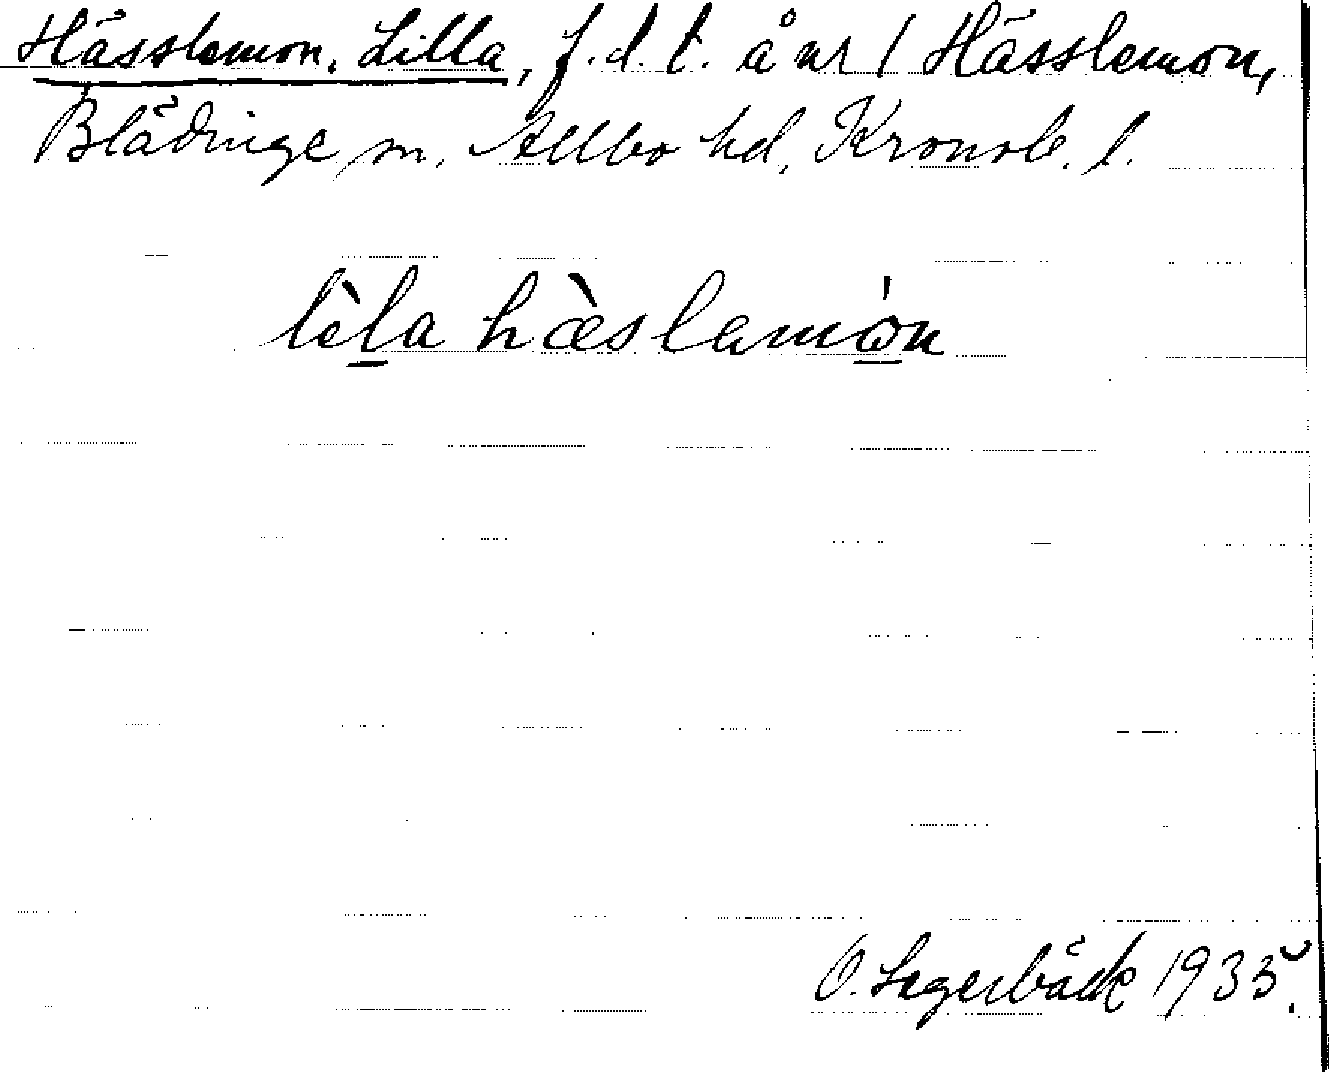 Hässlemon, Lilla, f.d.t. å nr 1 Hässlemon,
Blädinge sn, Allbo hd, Kronob. l.
lìla hæ̀slemòn
O. Lagerbäck 1935.